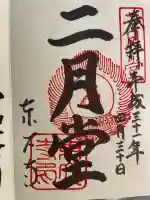 奉拝
平成三十一年
四月三十日
二月堂
東大寺